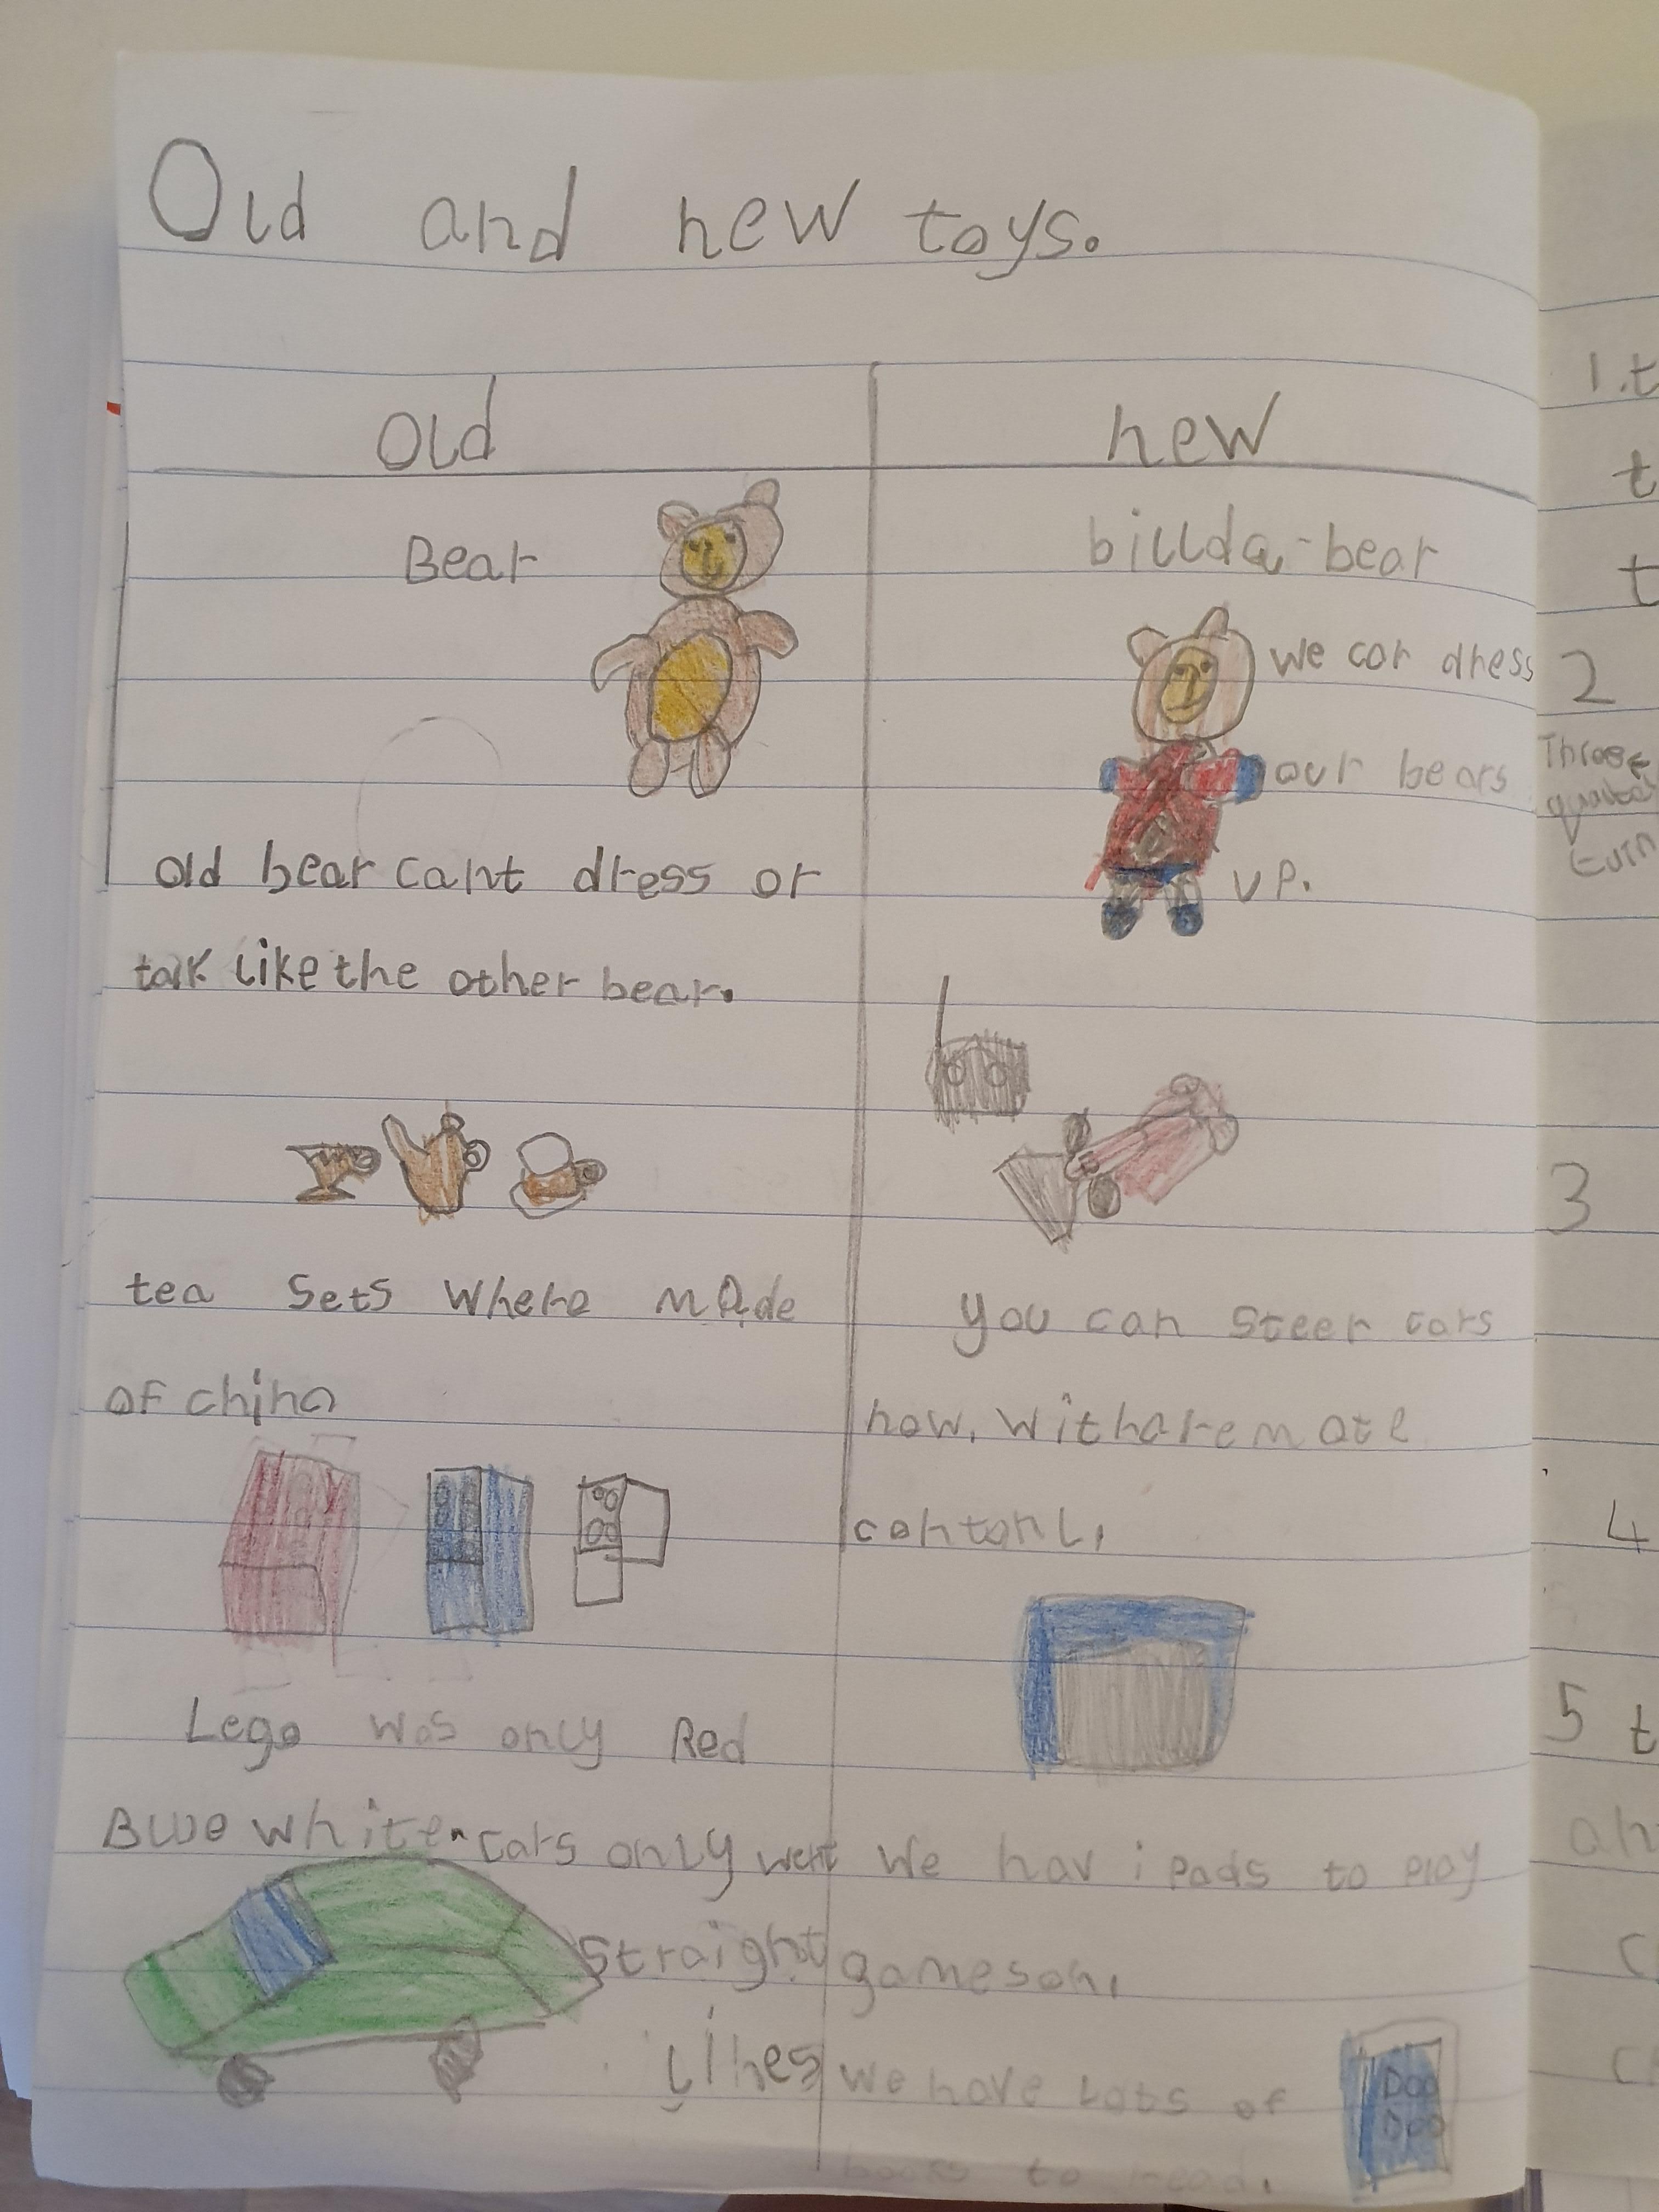 Old and new toys.
Old
Bear
old bear cant dress or
talk like the other bear.
tea sets where made
of china
Lego was only Red
Blue white. cars only went
straight
lines
new
billda-bear
we can dress
our bears
up.
you can steer cars
now. with a remote
contonl.
We hav i pads to play
games on.
we have Lots of
books to read.
1. t
t
t
2
Three
quarter
turn
3
4
5 t